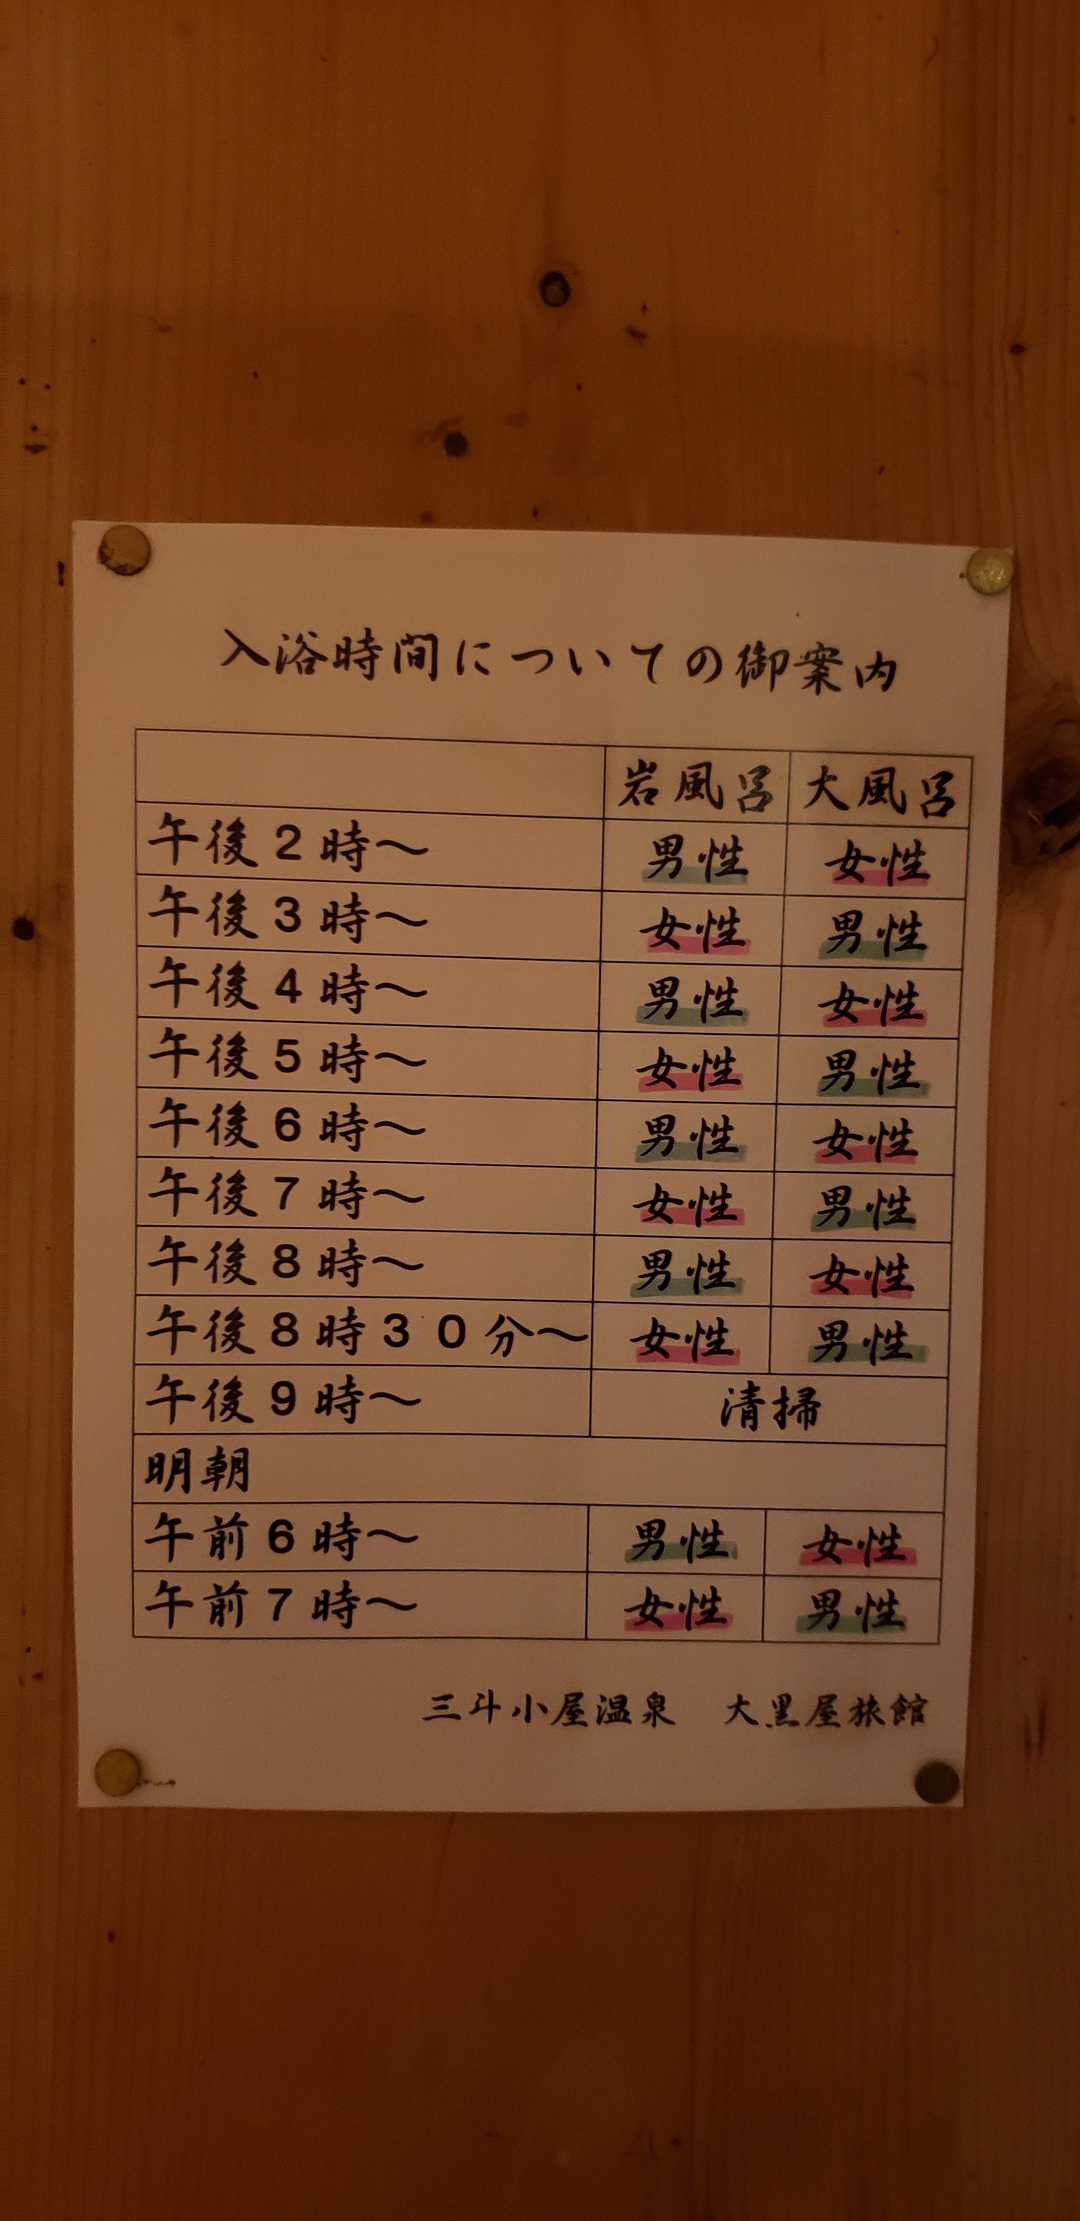 入浴時間についての御案内
岩風呂 大風呂
午後2時～ 男性 女性
午後3時～ 女性 男性
午後4時～ 男性 女性
午後5時～ 女性 男性
午後6時～ 男性 女性
午後7時～ 女性 男性
午後8時～ 男性 女性
午後8時30分～ 女性 男性
午後9時～ 清掃
明朝
午前6時～ 男性 女性
午前7時～ 女性 男性
三斗小屋温泉 大黒屋旅館